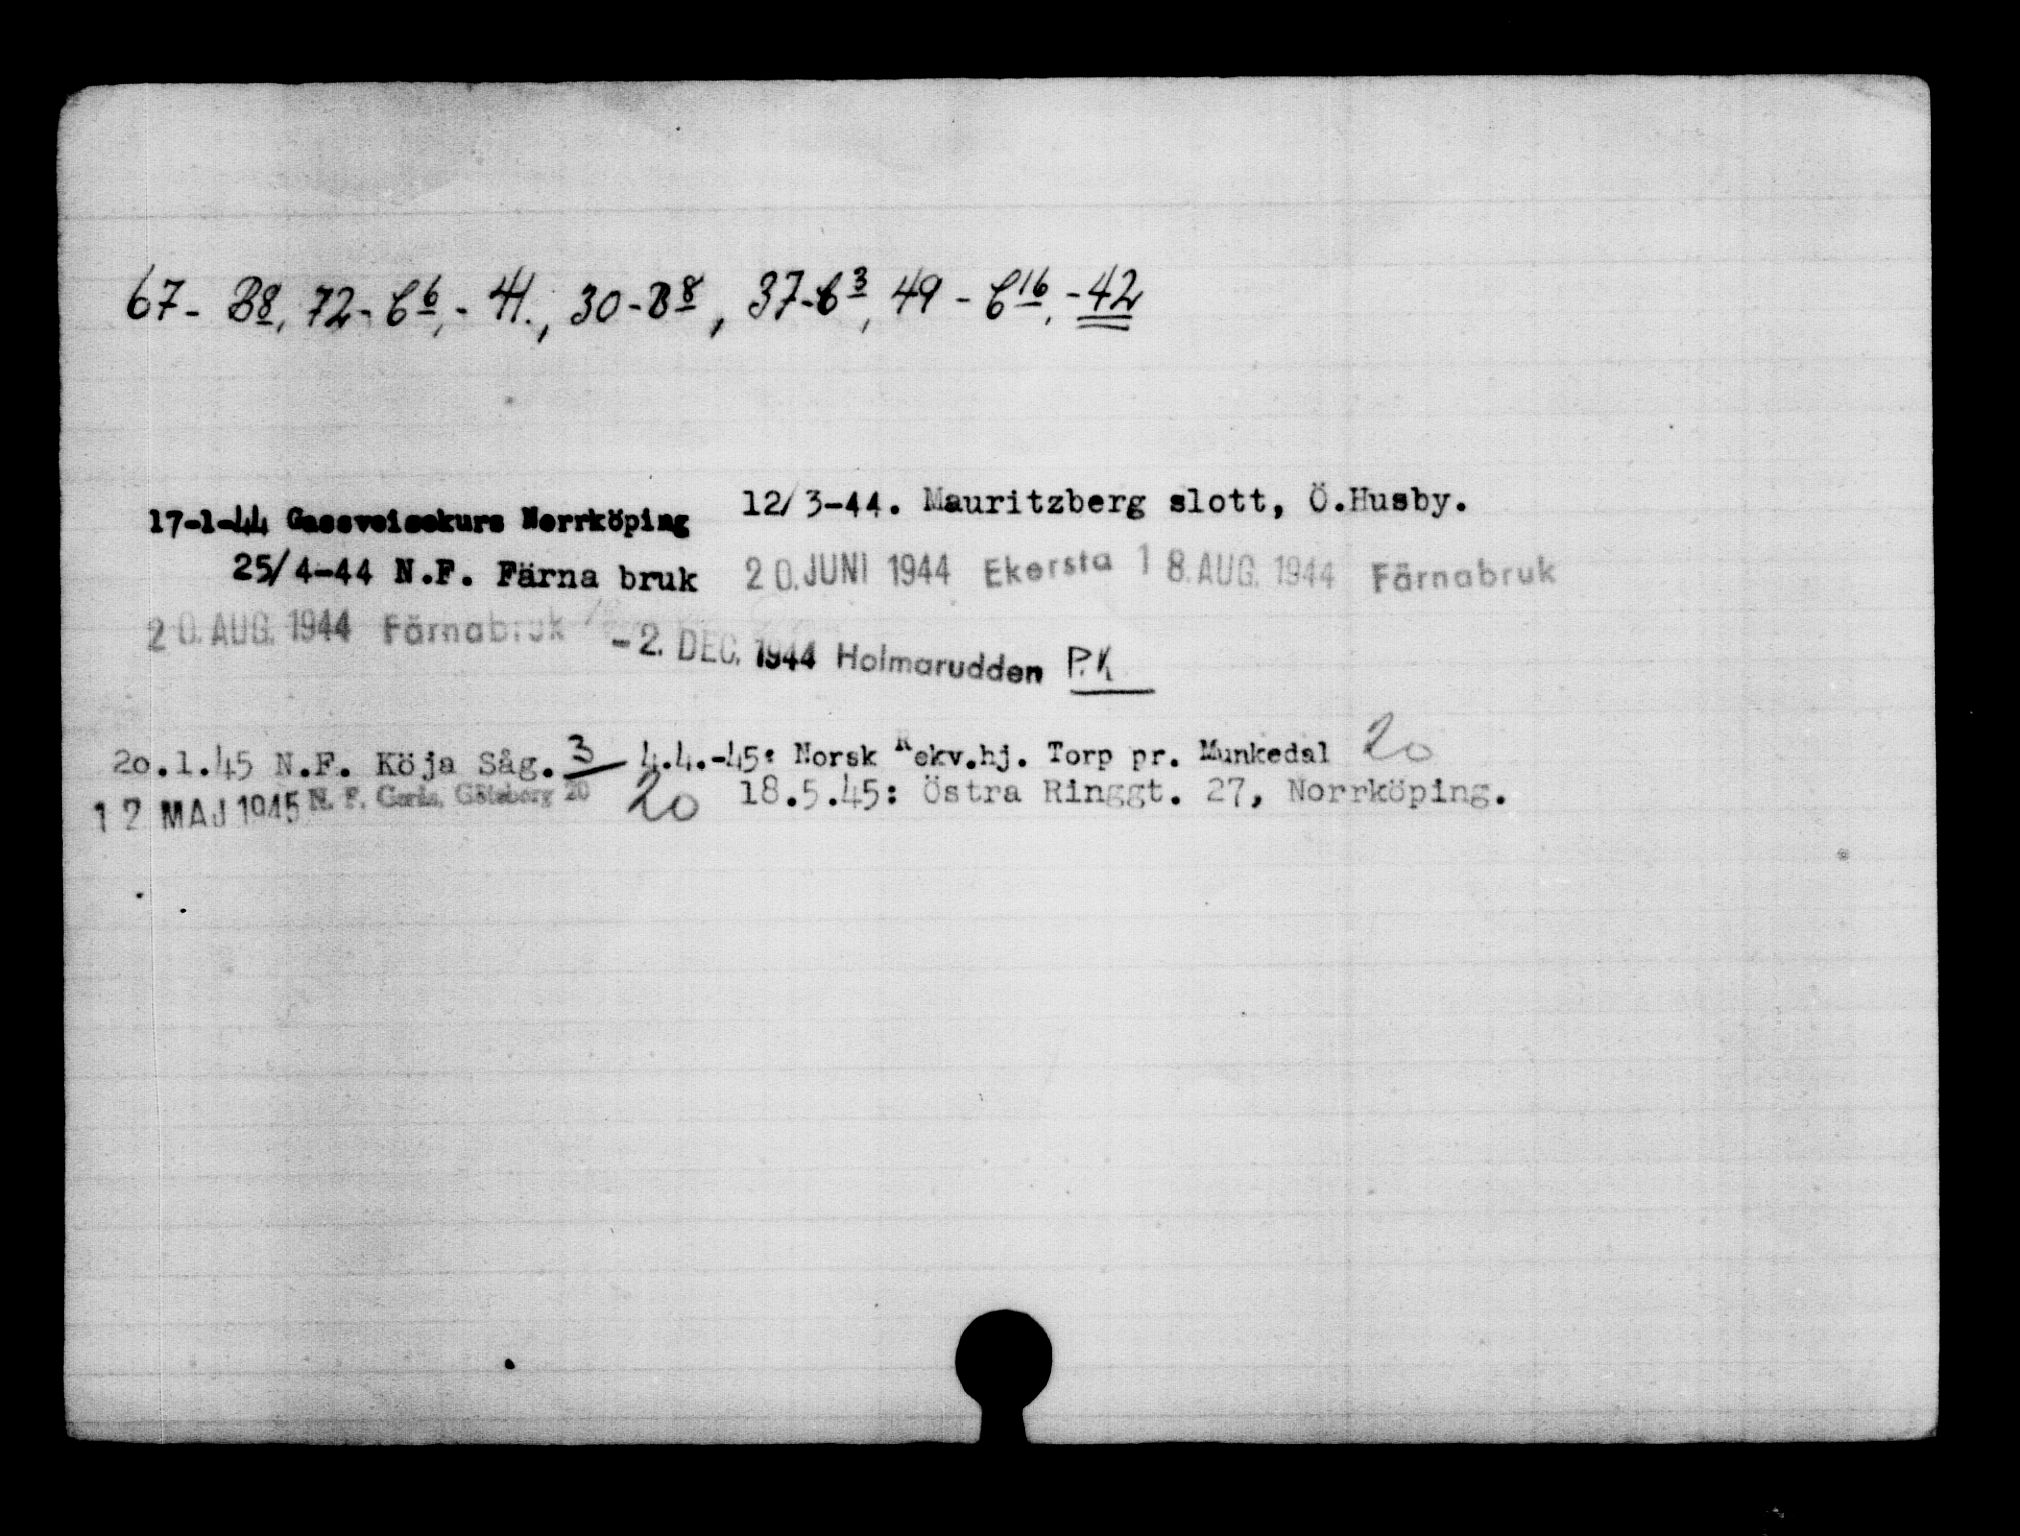 67- B8, 72- C6,- 41., 30-B8, 37-C3, 49 - C16,-42
17-1-44 Gassveisekurs Norrköping 12/3-44. Mauritzberg slott, Ö.Husby.
25/4-44 N.F. Färna bruk 20.JUNI 1944 Ekersta 18.AUG.1944 Färnabruk
20.AUG.1944 Färnabruk -2.DEC.1944 Holmarudden P.K
20.1.45 N.F. Köja Såg. 3 4.4.-45: Norsk Rekv.hj. Torp pr. Munkedal 20
12 MAJ 1945 N. F. Göteborg 20 20 18.5.45: Östra Ringgt. 27, Norrköping.